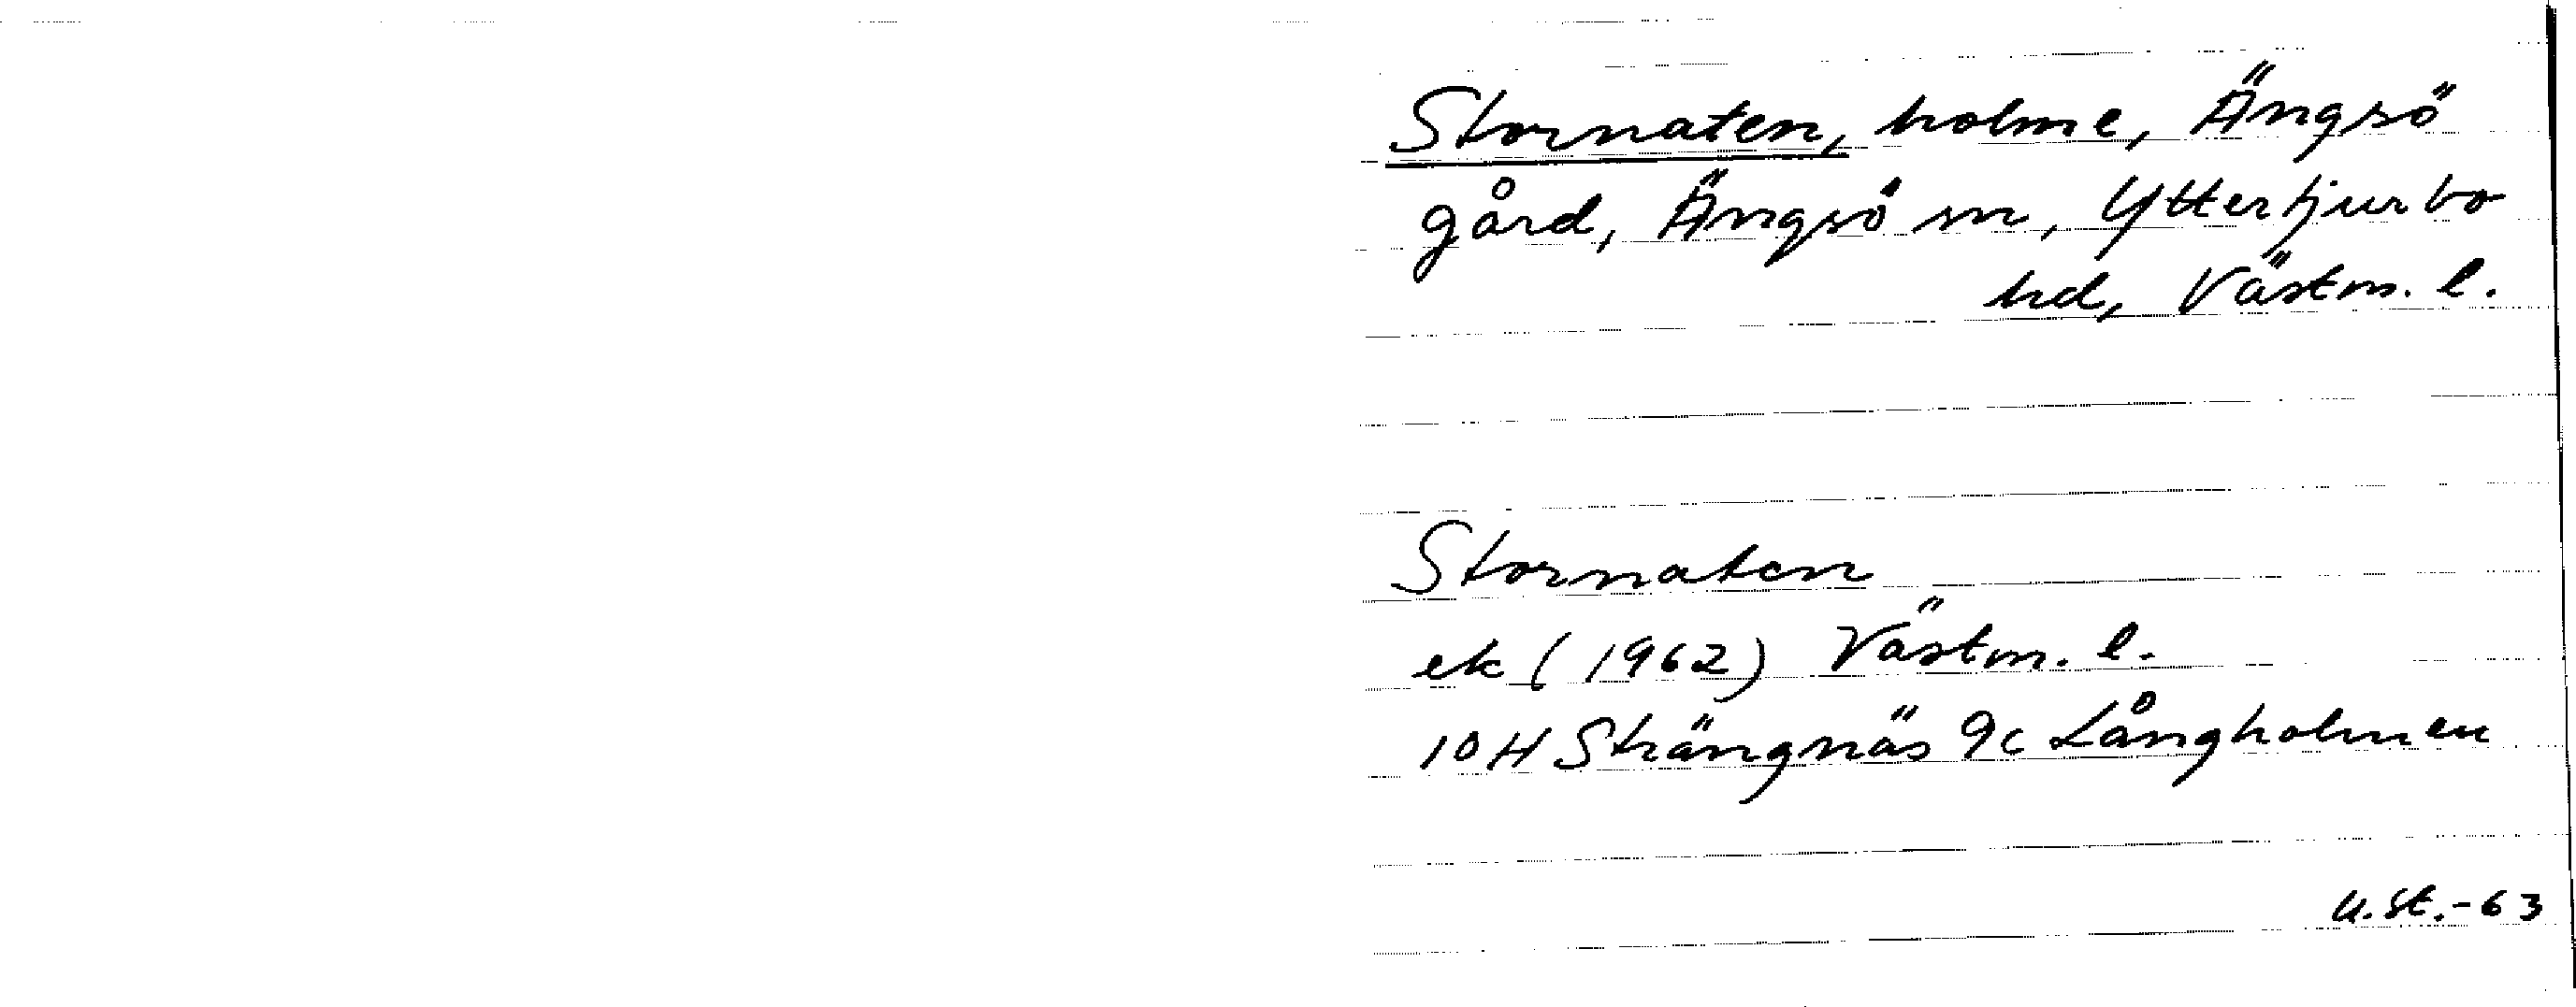 Stornaten, holme, Ängsö
gård, Ängsö sn, Yttertjurbo
hd, Västm. l.
Stornaten
ek (1962) Västm. l.
10H Strängnäs 9c Långholmen
U.St.-63